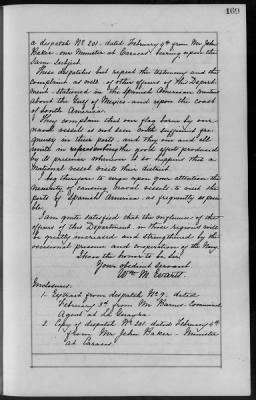 169
a despatch No 201. dated February 9th from Mr John
Baker our Minister at Caracas bearing upon the
Same Subject.
These despatches but repeat the testimony and the
complaint as well of other officers of this Depart-
ment stationed in the Spanish American waters
about the Gulf of Mexico and upon the coast
of South America.
They complain that our flag borne by our
naval vessels is not seen with sufficient fre-
quency in their ports, and they one and all
unite in representing the good effects produced
by its presence whenever it so happens that a
national vessel visits their district.
I beg therefore to urge upon your attention the
necessity of causing naval vessels to visit the
ports of Spanish America as frequently as possi-
ble.
I am quite satisfied that the usefulness of the
officers of this Department in those regions will
be greatly increased and strengthened by the
occasional presence and cooperation of the Navy.
I have the honor to be Sir:
Your obedient Servant,
Wm M. Evarts.
Enclosures.
1. Extract from despatch No 9. dated
February 3d from Mr Barnes Commercial
Agent at La Guayra.
2. Copy of despatch No 201 dated February 9th
from Mr John Baker - Minister
at Caracas